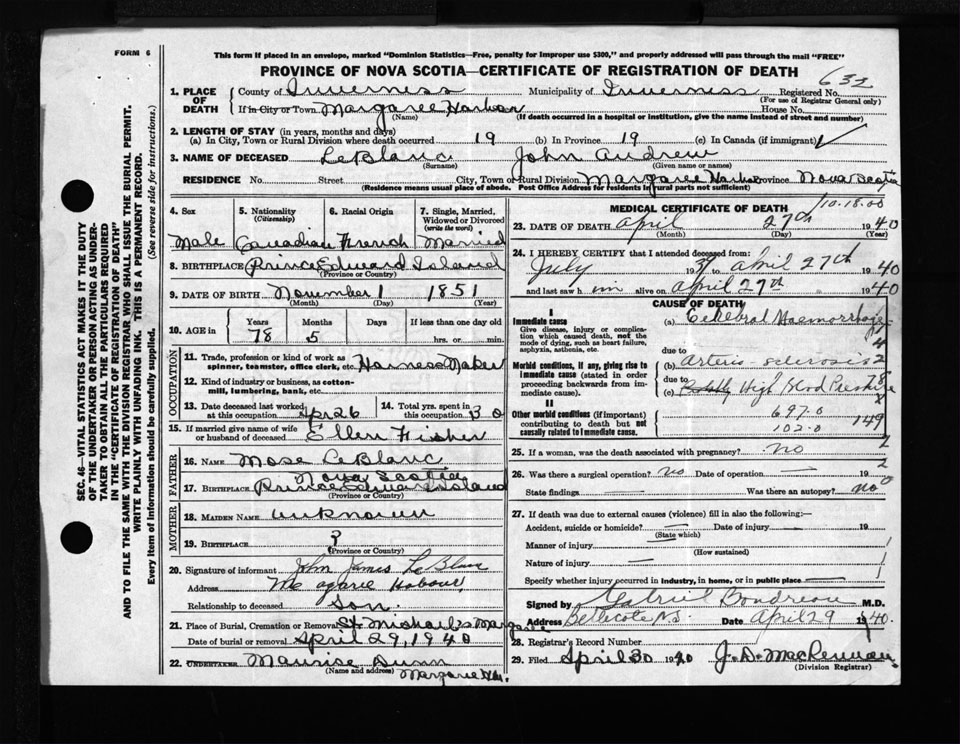 FORM 6
This form if placed in an envelope, marked "Dominion Statistics—Free, penalty for improper use $300," and properly addressed will pass through the mail "FREE"
PROVINCE OF NOVA SCOTIA—CERTIFICATE OF REGISTRATION OF DEATH
632
1. PLACE OF DEATH
County of Inverness Municipality of Inverness Registered No.
(For use of Registrar General only)
If in City or Town Margaree Harbor House No.
(Name) (If death occurred in a hospital or institution, give the name instead of street and number)
2. LENGTH OF STAY (in years, months and days)
(a) In City, Town or Rural Division where death occurred 19 (b) In Province 19 (c) In Canada (if immigrant) ✓
3. NAME OF DECEASED LeBlanc John Andrew
(Surname) (Given name or names)
RESIDENCE No. Street City, Town or Rural Division Margaree Harbor Province Nova Scotia
(Residence means usual place of abode. Post Office Address for residents in rural parts not sufficient)
4. Sex 5. Nationality (Citizenship) 6. Racial Origin 7. Single, Married, Widowed or Divorced (write the word)
Male Canadian French Married
8. BIRTHPLACE Prince Edward Island
(Province or Country)
9. DATE OF BIRTH November 1 1851
(Month) (Day) (Year)
10. AGE in Years Months Days If less than one day old
78 5 hrs. or min.
OCCUPATION
11. Trade, profession or kind of work as spinner, teamster, office clerk, etc. Harness Maker
12. Kind of industry or business, as cotton-mill, lumbering, bank, etc.
13. Date deceased last worked at this occupation Apr 26 14. Total yrs. spent in this occupation 30
15. If married give name of wife or husband of deceased Ellen Fisher
FATHER
16. NAME Mose LeBlanc
Nova Scotia
17. BIRTHPLACE Prince Edward Island
(Province or Country)
MOTHER
18. MAIDEN NAME unknown
19. BIRTHPLACE ?
(Province or Country)
20. Signature of informant John James LeBlanc
Address Me agarie Habour
Relationship to deceased Son.
21. Place of Burial, Cremation or Removal St Michael's Margaree
Date of burial or removal April 29, 1940
22. UNDERTAKER Maurise Dunn
(Name and address) Margarie Hbr.
MEDICAL CERTIFICATE OF DEATH
10-18-00
23. DATE OF DEATH April 27th 1940
(Month) (Day) (Year)
24. I HEREBY CERTIFY that I attended deceased from:
July 1939 to April 27th 1940
and last saw him alive on April 27th 1940
CAUSE OF DEATH
I
Immediate cause (a) Cerebral Haemorrhage
Give disease, injury or complication which caused death, not the mode of dying, such as heart failure, asphyxia, asthenia, etc.
due to
Morbid conditions, if any, giving rise to immediate cause (stated in order proceeding backwards from immediate cause). (b) Arterio sclerosis
due to
(c) High Blood Pressure
II
Other morbid conditions (if important) contributing to death but not causally related to immediate cause.
697.0
102.0
149
25. If a woman, was the death associated with pregnancy? no
26. Was there a surgical operation? no Date of operation — 19
State findings — Was there an autopsy? no
27. If death was due to external causes (violence) fill in also the following:—
Accident, suicide or homicide? — Date of injury — 19
(State which)
Manner of injury
(How sustained)
Nature of injury —
Specify whether injury occurred in industry, in home, or in public place —
Signed by Gabriel Boudreau M.D.
Address Bellecote N.S. Date April 29 1940
28. Registrar's Record Number
29. Filed April 30 1940 J. D. MacLennan
(Division Registrar)
SEC. 46—VITAL STATISTICS ACT MAKES IT THE DUTY
OF THE UNDERTAKER OR PERSON ACTING AS UNDER-
TAKER TO OBTAIN ALL THE PARTICULARS REQUIRED
IN THE "CERTIFICATE OF REGISTRATION OF DEATH"
AND TO FILE THE SAME WITH THE DIVISION REGISTRAR WHO SHALL ISSUE THE BURIAL PERMIT.
WRITE PLAINLY WITH UNFADING INK. THIS IS A PERMANENT RECORD.
Every item of Information should be carefully supplied. (See reverse side for instructions.)